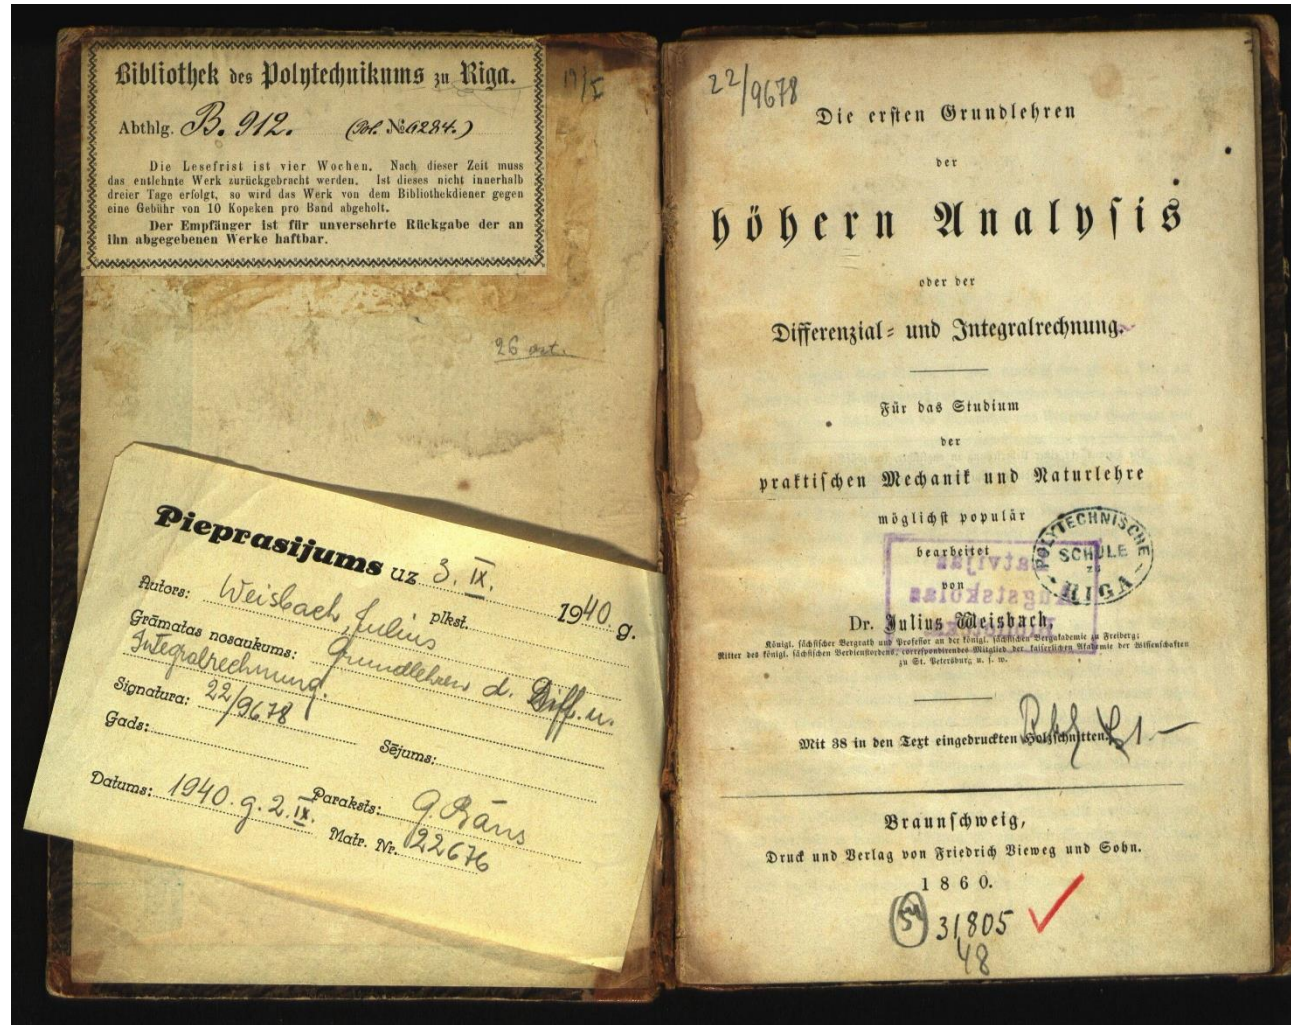 Bibliothek des Polytechnikums zu Riga.
Abthlg. B. 912. (Bbl. № 6284.)
Die Lesefrist ist vier Wochen. Nach dieser Zeit muss
das entlehnte Werk zurückgebracht werden. Ist dieses nicht innerhalb
dreier Tage erfolgt, so wird das Werk von dem Bibliothekdiener gegen
eine Gebühr von 10 Kopeken pro Band abgeholt.
Der Empfänger ist für unversehrte Rückgabe der an
ihn abgegebenen Werke haftbar.
26
Pieprasijums uz 3. IX. 1940 g.
plkst.
Autors: Weisbach, Julius
Grāmatas nosaukums: Grundlehren d. Diff. u.
Integralrechnung.
Signatura: 22/9678
Gads: Sējums:
Datums: 1940. g. 2. IX. Paraksts:
Matr. Nr. 22676
22/9678
Die erſten Grundlehren
der
höhern Analyſis
oder der
Differenzial- und Integralrechnung.
Für das Studium
der
praktiſchen Mechanik und Naturlehre
möglichſt populär
bearbeitet
von
Dr. Julius Weisbach,
Königl. ſächſiſcher Bergrath und Profeſſor an der königl. ſächſiſchen Bergakademie zu Freiberg;
Ritter des königl. ſächſiſchen Verdienſtordens, correſpondirendes Mitglied der kaiſerlichen Akademie der Wiſſenſchaften
zu St. Petersburg u. ſ. w.
POLYTECHNISCHE
SCHULE
RIGA
Mit 38 in den Text eingedruckten Holzſchnitten.
Braunſchweig,
Druck und Verlag von Friedrich Vieweg und Sohn.
1860.
31805
48